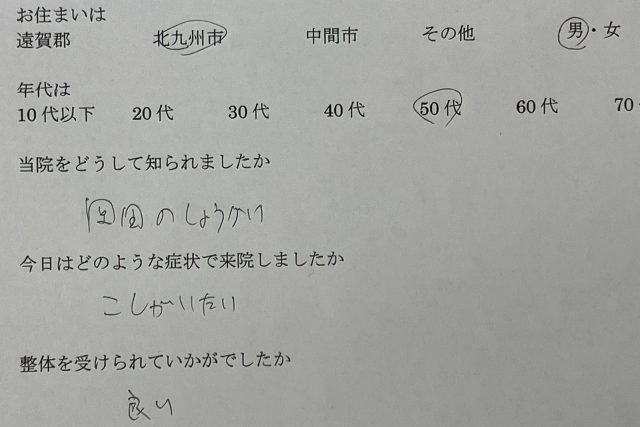 お住まいは
遠賀郡 北九州市 中間市 その他 男・女
年代は
10代以下 20代 30代 40代 50代 60代 70
当院をどうして知られましたか
のしょうかい
今日はどのような症状で来院しましたか
こしがいたい
整体を受けられていかがでしたか
良い